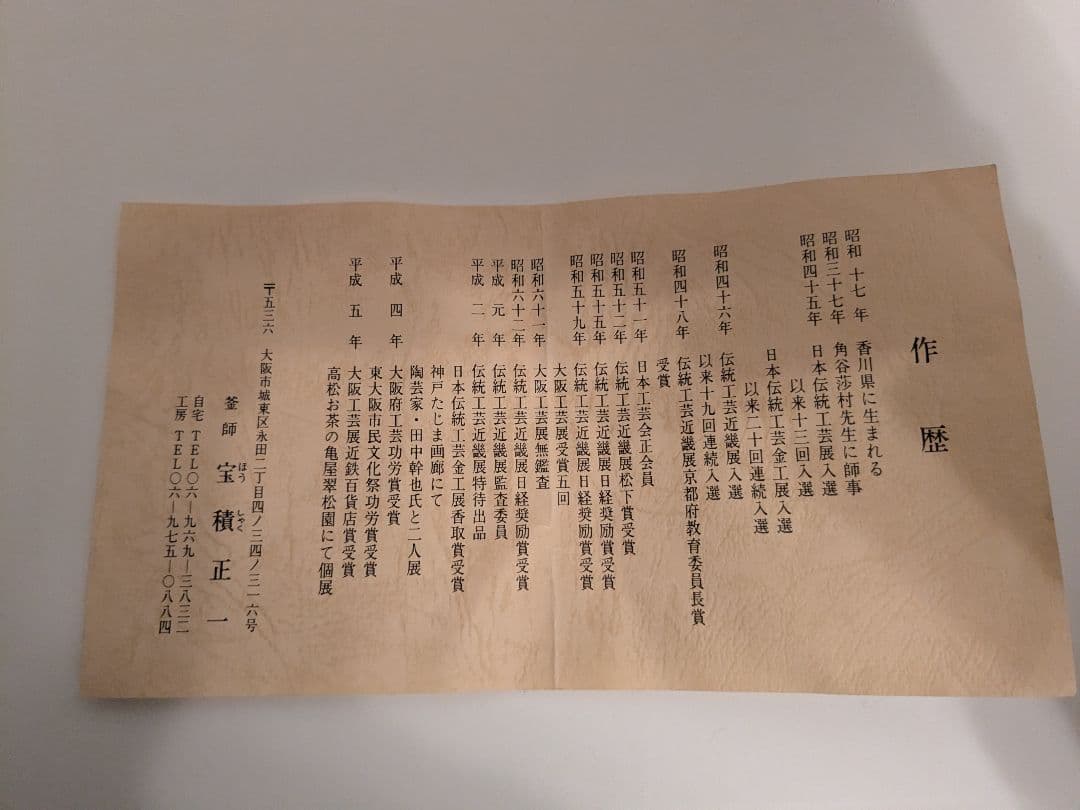 作歴
昭和 十七 年 香川県に生まれる
昭和三十七年 角谷莎村先生に師事
昭和四十五年 日本伝統工芸展入選
以来十三回入選
日本伝統工芸金工展入選
以来二十回連続入選
昭和四十六年 伝統工芸近畿展入選
以来十九回連続入選
昭和四十八年 伝統工芸近畿展京都府教育委員長賞
受賞
昭和五十一年 日本工芸会正会員
昭和五十二年 伝統工芸近畿展松下賞受賞
昭和五十五年 伝統工芸近畿展日経奨励賞受賞
昭和五十九年 伝統工芸近畿展日経奨励賞受賞
大阪工芸展受賞五回
昭和六十一年 大阪工芸展無鑑査
昭和六十二年 伝統工芸近畿展日経奨励賞受賞
平成 元 年 伝統工芸近畿展監査委員
平成 二 年 伝統工芸近畿展特待出品
日本伝統工芸金工展香取賞受賞
神戸たじま画廊にて
陶芸家・田中幹也氏と二人展
平成 四 年 大阪府工芸功労賞受賞
東大阪市民文化祭功労賞受賞
平成 五 年 大阪工芸展近鉄百貨店賞受賞
高松お茶の亀屋翠松園にて個展
〒五三六 大阪市城東区永田二丁目四ノ三四ノ三一六号
釜師 宝積正一
ほう しゃく
自宅 TEL〇六―九六九―三八三二
工房 TEL〇六―九七五―〇八八四